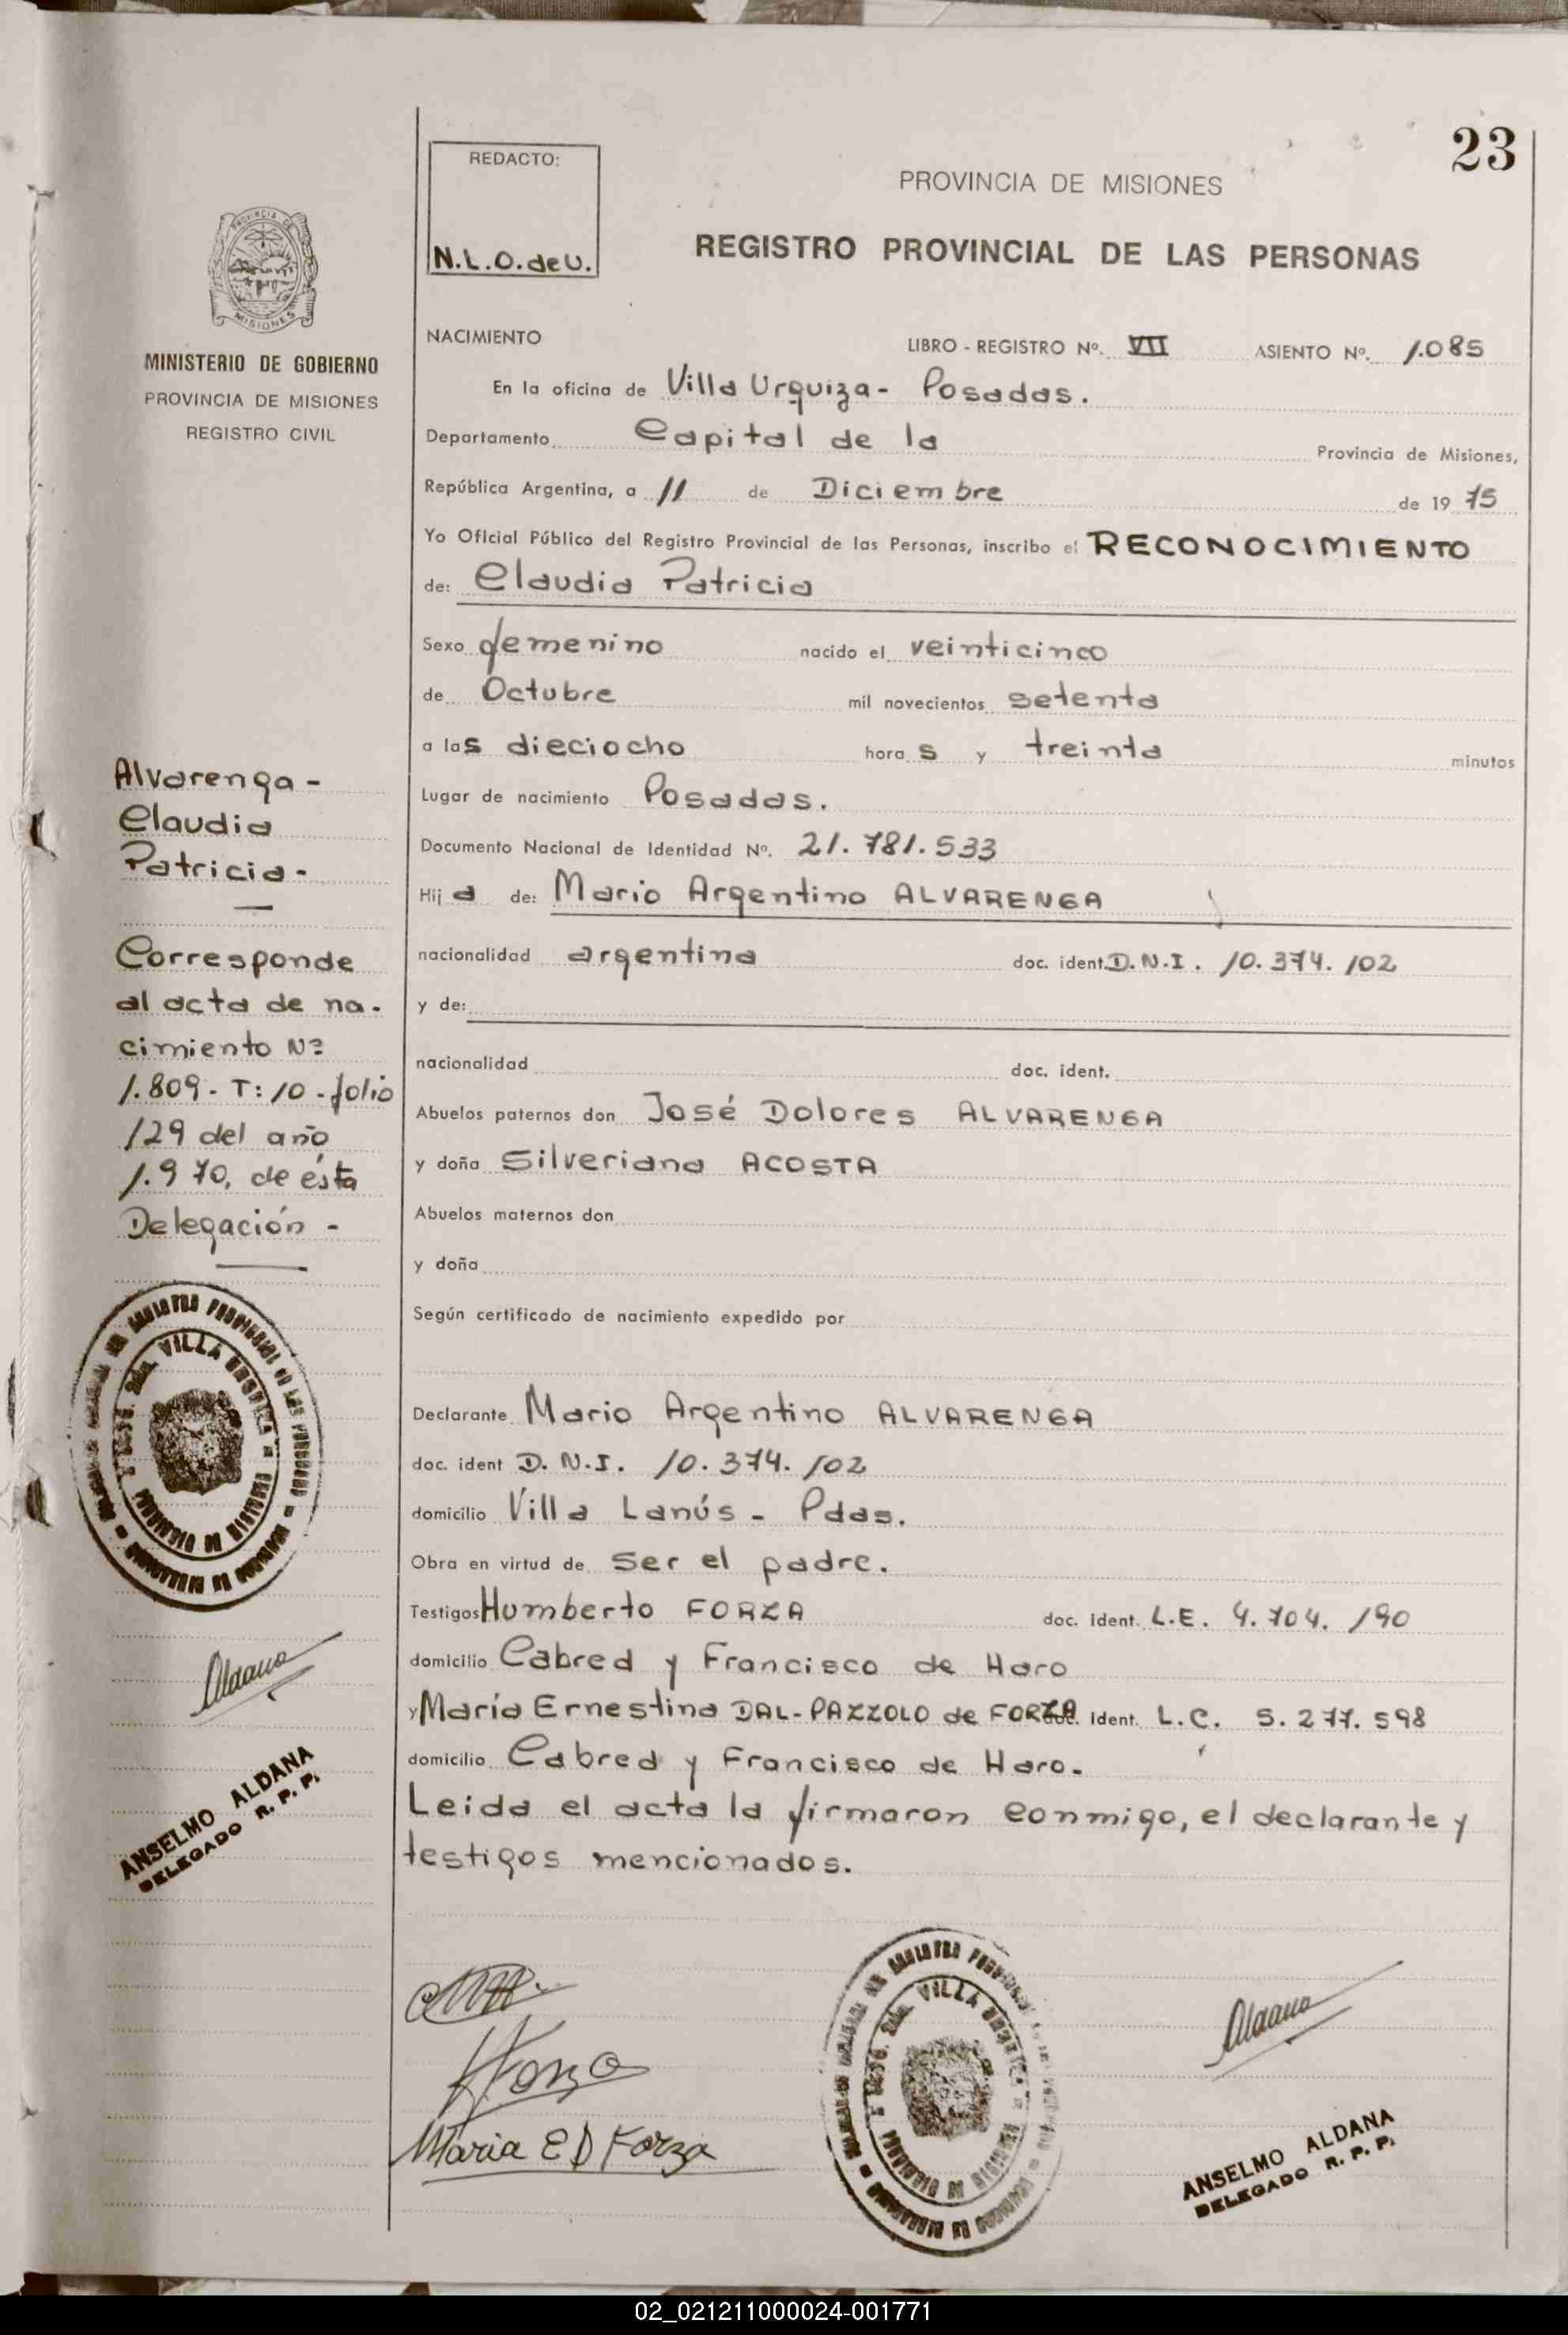 23
REDACTO:
N.L.O. de U.
PROVINCIA DE MISIONES
REGISTRO PROVINCIAL DE LAS PERSONAS
PROVINCIA DE
MISIONES
MINISTERIO DE GOBIERNO
PROVINCIA DE MISIONES
REGISTRO CIVIL
NACIMIENTO LIBRO - REGISTRO Nº. VII ASIENTO Nº. 1.085
En la oficina de Villa Urquiza - Posadas.
Departamento Capital de la Provincia de Misiones,
República Argentina, a 11 de Diciembre de 19 75
Yo Oficial Público del Registro Provincial de las Personas, inscribo el RECONOCIMIENTO
de: Claudia Patricia
Sexo femenino nacido el veinticinco
de Octubre mil novecientos setenta
a las dieciocho hora s y treinta minutos
Lugar de nacimiento Posadas.
Documento Nacional de Identidad Nº. 21.781.533
Hij a de: Mario Argentino ALVARENGA
nacionalidad argentina doc. ident. D.N.I. 10.374.102
y de:
nacionalidad doc. ident.
Abuelos paternos don José Dolores ALVARENGA
y doña Silveriana ACOSTA
Abuelos maternos don
y doña
Según certificado de nacimiento expedido por
Declarante Mario Argentino ALVARENGA
doc. ident D.N.I. 10.374.102
domicilio Villa Lanús - Pdas.
Obra en virtud de ser el padre.
Testigos Humberto FORZA doc. ident. L.E. 4.704.190
domicilio Cabred y Francisco de Haro
y María Ernestina DAL-PAZZOLO de FORZA doc. Ident. L.C. 5.277.598
domicilio Cabred y Francisco de Haro.
Leida el acta la firmaron conmigo, el declarante y
testigos mencionados.
Alvarenga -
Claudia
Patricia -
Corresponde
al acta de na-
cimiento Nº
1.809 - T: 10 - folio
129 del año
1.970, de ésta
Delegación -
VILLA URQUIZA
PROVINCIA DE MISIONES
Aldana
ANSELMO ALDANA
DELEGADO R. P. P.
HForza
Maria E D Forza
VILLA URQUIZA
PROVINCIA DE MISIONES
Aldana
ANSELMO ALDANA
DELEGADO R. P. P.
02_021211000024-001771